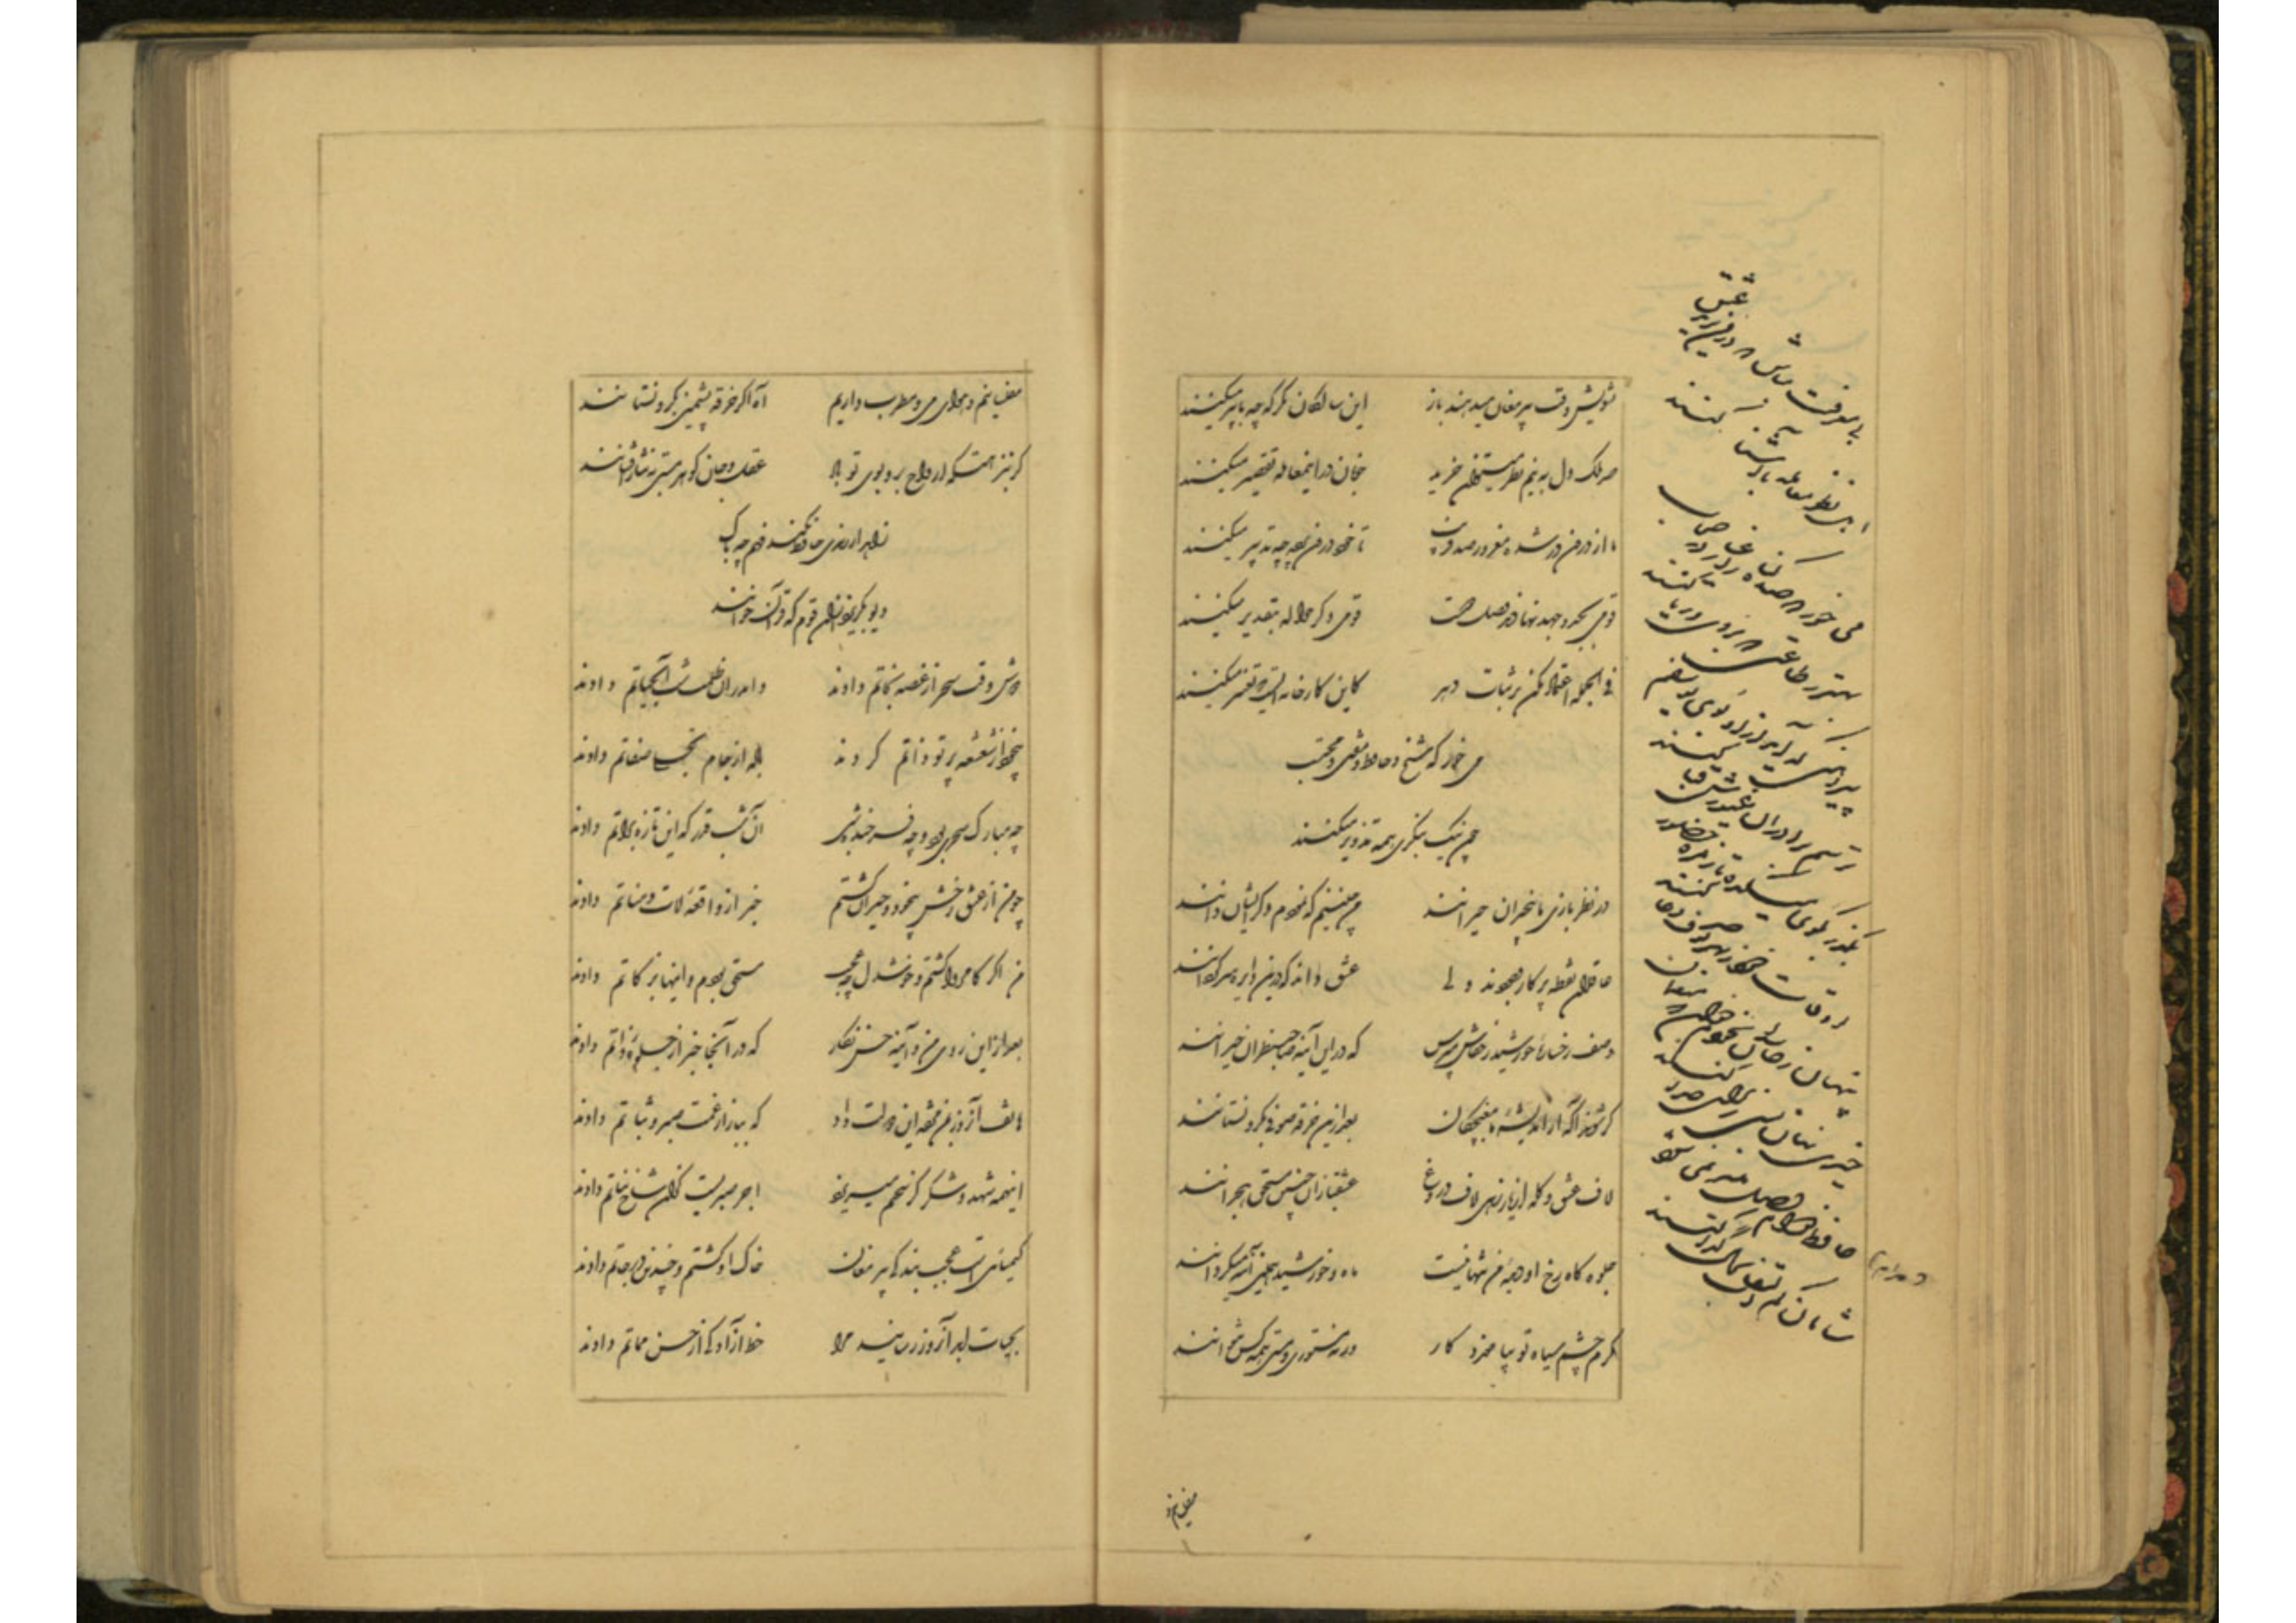 تشویش وقت پیر مغان میدهند باز این سالکان نگر که چه با پیر میکنند
صد ملک دل به نیم نظر میتوان خرید خوبان در این معامله تقصیر میکنند
ما از درون در شده مغرور صد فریب تا خود درون پرده چه تدبیر میکنند
قومی بجد و جهد نهادند وصل دوست قومی دگر حواله بتقدیر میکنند
فی الجمله اعتماد مکن بر ثبات دهر کاین کارخانه ایست که تغییر میکنند
می خور که شیخ و حافظ و مفتی و محتسب
چون نیک بنگری همه تزویر میکنند
در نظر بازی ما بیخبران حیرانند من چنینم که نمودم دگر ایشان دانند
عاقلان نقطه پرکار وجودند ولی عشق داند که درین دایره سرگردانند
وصف رخساره خورشید ز خفاش مپرس که در این آینه صاحب نظران حیرانند
گر شوند آگه از اندیشه ما مغبچگان بعد ازین خرقه صوفی بگرو نستانند
لاف عشق و گله از یار زهی لاف دروغ عشقبازان چنین مستحق هجرانند
جلوه گاه رخ او دیده من تنها نیست ماه و خورشید همین آینه میگردانند
مگرم چشم سیاه تو بیاموزد کار ورنه مستوری و مستی همه کس نتوانند
بی معرفت مباش که در من یزید عشق
اهل نظر معامله با آشنا کنند
می خور که صد گناه ز اغیار در حجاب
بهتر ز طاعتی که بروی و ریا کنند
پیراهنی که آید از او بوی یوسفم
ترسم برادران غیورش قبا کنند
بگذر بکوی میکده تا زمره حضور
اوقات خود ز بهر تو صرف دعا کنند
پنهان ز حاسدان بخودم خوان که منعمان
خیر نهان برای رضای خدا کنند
حافظ دوام وصل میسر نمی شود
شاهان کم التفات بحال گدا کنند
مفلسانیم و
مفلسانیم و هوای می و مطرب داریم آه اگر خرقه پشمین بگرو نستانند
گر بنزهتگه ارواح برد بوی تو باد عقل و جان گوهر هستی بنثار افشانند
زاهد ار رندی حافظ نکند فهم چه باک
دیو بگریزد از آن قوم که قرآن خوانند
دوش وقت سحر از غصه نجاتم دادند واندر آن ظلمت شب آب حیاتم دادند
بیخود از شعشعه پرتو ذاتم کردند باده از جام تجلی صفاتم دادند
چه مبارک سحری بود و چه فرخنده شبی آن شب قدر که این تازه براتم دادند
چون من از عشق رخش بیخود و حیران گشتم خبر از واقعه لات و مناتم دادند
من اگر کامروا گشتم و خوشدل چه عجب مستحق بودم و اینها بزکاتم دادند
بعد از این روی من و آینه حسن نگار که در آنجا خبر از جلوه ذاتم دادند
هاتف آنروز بمن مژده این دولت داد که ببازار غمت صبر و ثباتم دادند
اینهمه شهد و شکر کز سخنم میریزد اجر صبریست کزان شاخ نباتم دادند
کیمیائی است عجب بندگی پیر مغان خاک او گشتم و چندین درجاتم دادند
بحیات ابد آنروز رسانید مرا خط آزادگی از حسن مماتم دادند